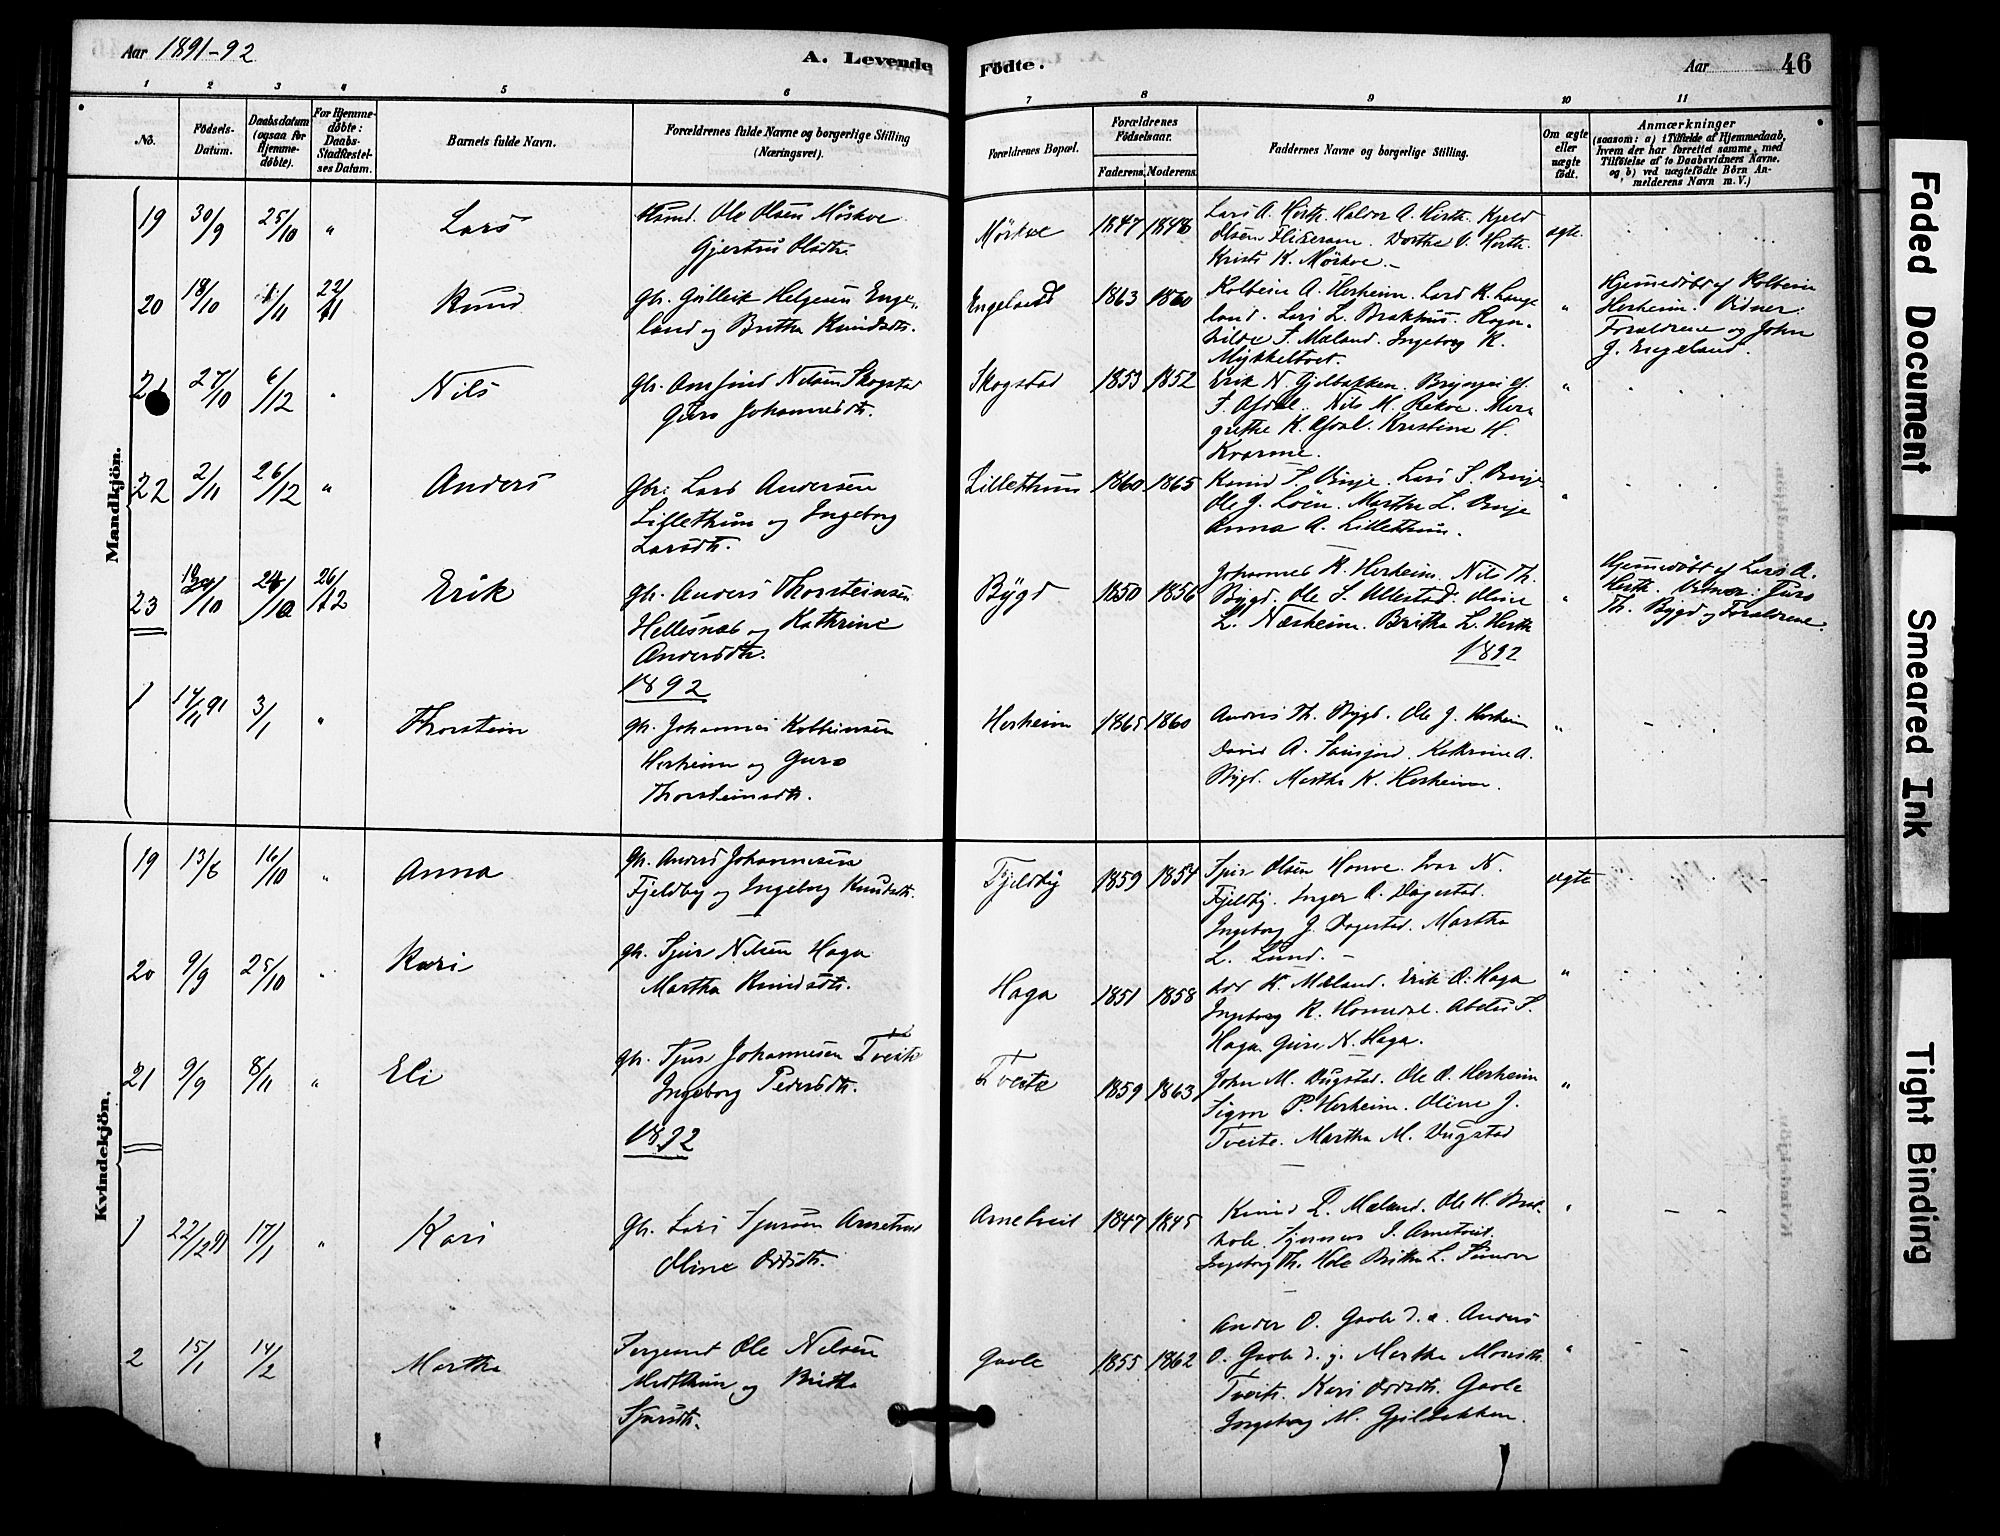 Aar 1891-92
A. Levende
Födte.
Aar
46
1 2 3 4 5 6 7 8 9 10 11
No.
Födsels-
Datum.
Daabsdatum
(ogsaa for
Hjemme-
döbte).
For Hjemme-
döbte:
Daabs-
Stadfæstel-
ses Datum.
Barnets fulde Navn.
Forældrenes fulde Navne og borgerlige Stilling
(Næringsvei).
Forældrenes Bopæl.
Forældrenes
Födselsaar.
Faderens.
Moderens.
Faddernes Navne og borgerlige Stilling.
Om ægte
eller
uægte
födt.
Anmærkninger
(saasom: a) i Tilfælde af Hjemmedaab,
hvem der har forrettet samme, med
Tilföielse af to Daabsvidners Navne.
og b) ved uægtefödte Börn An-
melderens Navn m. V.)
Mandkjön.
19 30/9 25/10 " Lars
Ole Olsen Mörkve
Gjertrud Olsdtr.
Mörkve 1847 1848
Lars A. Herth. Haldor A. Herth. Kjeld
Olsen Dorthe O. Herth.
Kristi K. Mörkve.
ægte.
20 18/10 /11 22/11 Knud
gbr. Gulleik Helgesen Enge-
land og Britha Knudsdtr.
Engeland 1863 1860
Kolbein A. Herheim. Lars K. Lange
land. Lars L. Brakhus. Ragn-
hilde S. Mæland. Ingeborg K.
Mykkeltvet.
"
Hjemmedöbt af Kolbein
Herheim. Vidner:
Forældrene og John
J. Engeland.
21 27/10 6/12 " Nils
gbr. Amfind Nilsen Skogstad
Guro Johannesdtr.
Skogstad 1853 1852
Erik N. Gjelbakken. Brynjulf
S. Afdal. Nils M. Rekve. Mar-
grethe K. Afdal. Kristine H.
Kvarme.
"
22 2/11 26/12 " Anders
gbr. Lars Andersen
Lillethun og Ingeborg
Larsdtr.
Lillethun 1860 1865
Knud S. Vinje. Lars S. Vinje.
Ole J. Löen. Martha L. Vinje
Anna A. Lillethun.
"
23 /10 24/10 26/12 Erik
gbr. Anders Thorsteinsen
Hellesnæs og Kathrine
Andersdtr.
Bÿgd 1850 1856
Johannes K. Herheim. Nils Th.
Bygd. Ole S. Ullestad. Oline
L. Næsheim. Britha L. Herth
"
Hjemmedöbt af Lars A.
Herth. Vidner: Guro
Th. Bygd og Forældrene.
1892
1892
1 14/11 91 3/1 " Thorstein
gbr. Johannes Kolbeinsen
Herheim og Guro
Thorsteinsdtr.
Herheim 1865 1860
Anders Th. Bygd. Ole J. Herheim
David A. Kathrine A.
Bygd. Martha K. Herheim.
"
Kvindekjön.
19 13/8 16/10 " Anna
gbr. Anders Johannesen
Fjeldby og Ingeborg Knudsdtr.
Fjeldby 1859 1854
Sjur Olsen Honve. Ivar N.
Fjeldby. Inger O. Dagestad.
Ingeborg J. Dagestad. Martha
L. Lund.
ægte
20 9/9 25/10 " Kari
gbr. Sjur Nilsen Haga
Martha Knudsdtr.
Haga 1851 1858
K. Mæland. Erik O. Haga
Ingeborg K. Abelis S.
Haga. Guri N. Haga.
"
21 9/9 8/11 " Eli
gbr. Sjur Johannesen Tveite
Ingeborg Pedersdtr.
Tveite 1859 1863
John M. Dugstad. Ole O. Herheim
Sigvor P. Herheim. Oline J.
Tveite. Martha M. Dugstad
"
1892
1 22/12 91 17/1 " Kari
gbr. Lars Sjursen Arnetveit
Oline Oddsdtr.
Arnetveit 1847 1845
Knud L. Mæland. Ole H.
S. Arnetveit.
Ingeborg Th. Hole Britha L. Finder
"
2 15/1 14/2 Martha
Sergeant Ole Nilsen
Midtthun og Britha
Sjursdtr.
Gavle 1855 1862
Anders O. Gavle d. æ. Anders
O. Gavle d. y. Martha Monsdtr.
Tveite. Kari Oddsdtr. Gavle
Ingeborg M. Gjelbakken.
"
Faded Document
Smeared Ink
Tight Binding